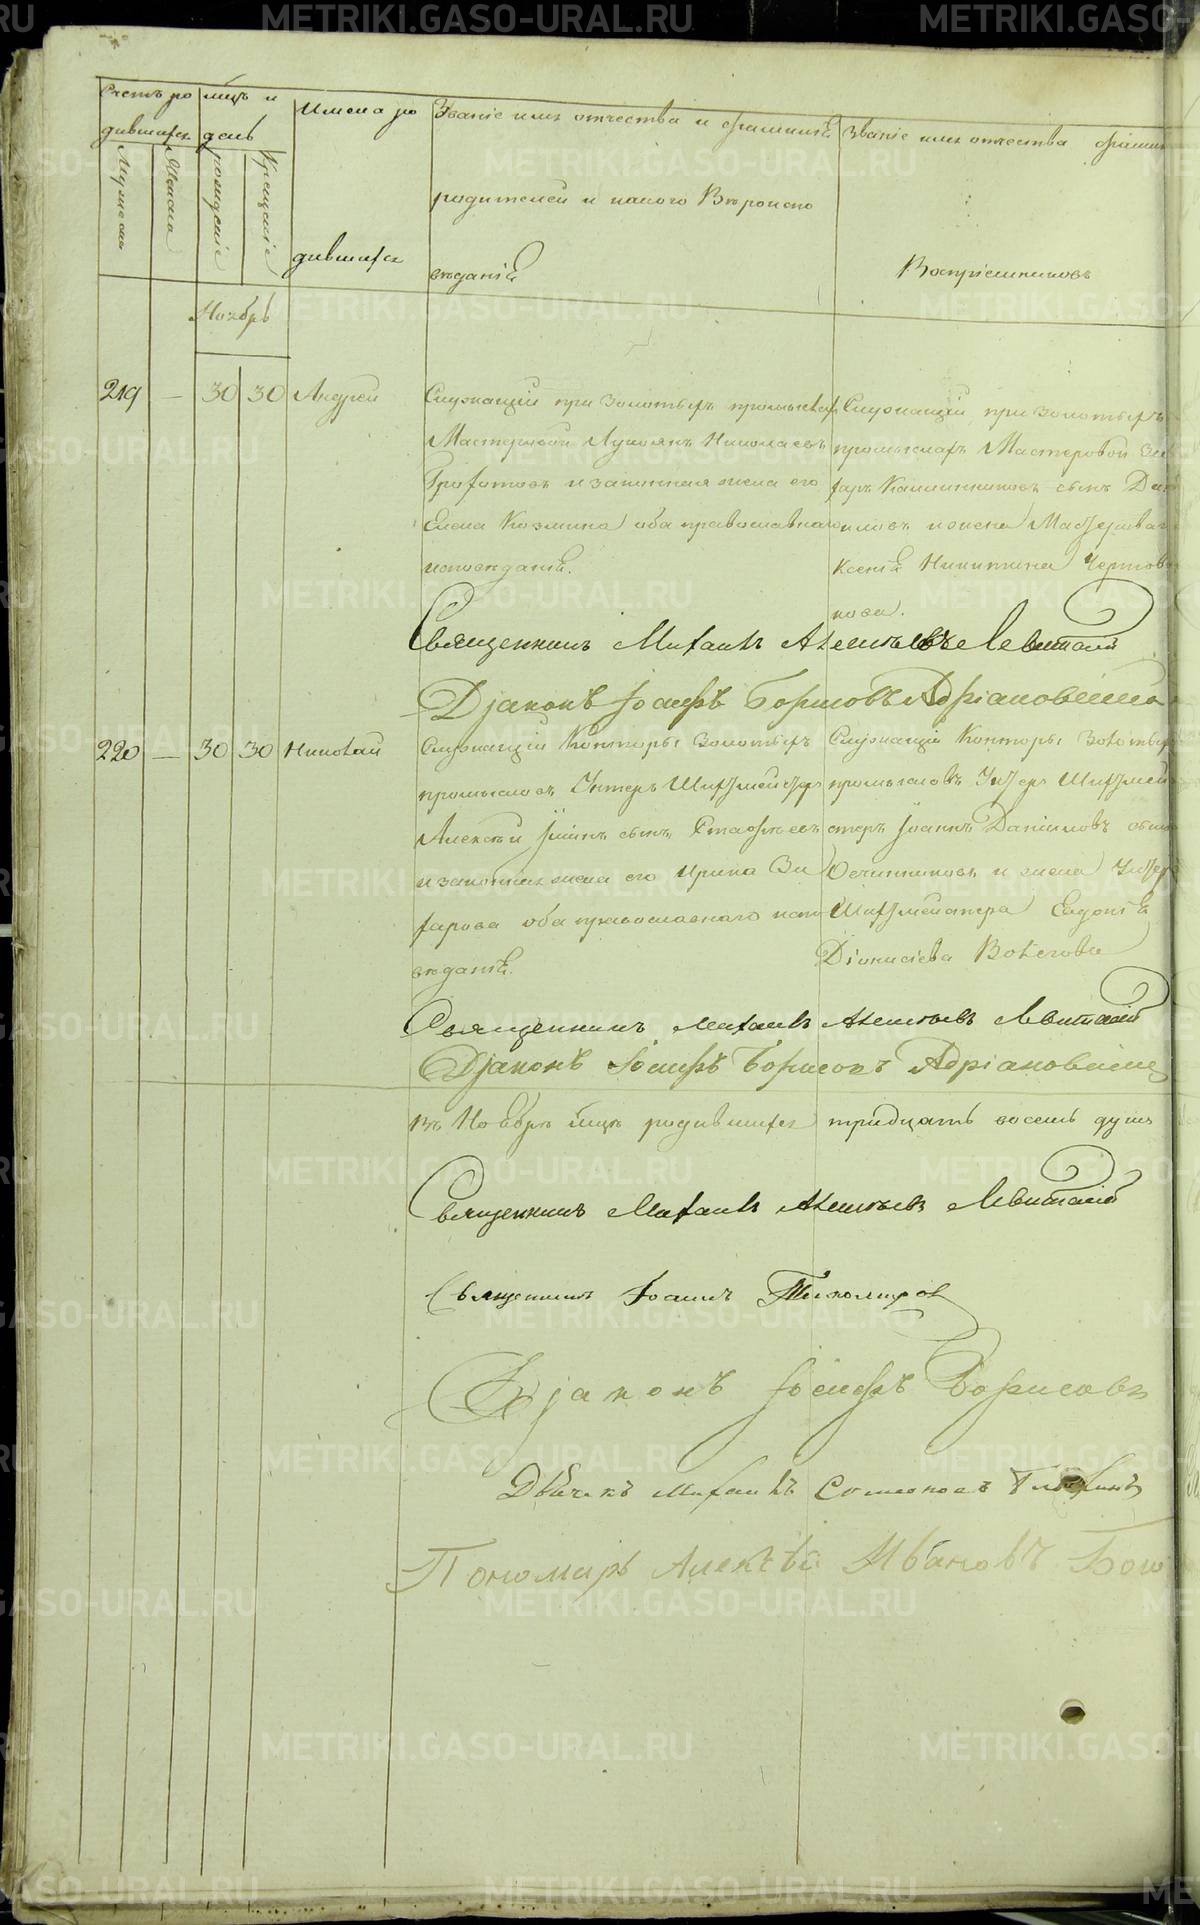 Счетъ ро
дившихся
мцъ и
день
Имена ро
дившихся
Званіе имя отчества и фамиліи
родителей и какого Вѣроиспо
вѣданія
Званіе имя отчества фамил
Воспріемниковъ
Мужеска
Женска
рожденіе
Крещеніе
Ноябрь
219 — 30 30 Андрей
Служащій при золотыхъ промыслах
Мастеровой Лукоянъ Николаевъ
и законная жена его
Елена Козмина оба православнаго
исповеданія.
Служащій при золотыхъ
промыслахъ Мастеровой За
харъ Калинниковъ сынъ Да
ниловъ и жена Мастерова
Ксенія Никитина
нова.
Священникъ Михаилъ Алексѣевъ Левитскій
Діаконъ Іосифъ Борисовъ Адріановскій
220 — 30 30 Николай
Служащій Конторы Золотыхъ
промысловъ Унтеръ Шихтмейстеръ
Алексѣй сынъ Стафѣевъ
и законная жена его Ирина За
харова оба православнаго испо
вѣданія.
Служащій Конторы Золотых
промысловъ Унтеръ Шихтмей
стеръ Іоаннъ Даниловъ сынъ
Овчинниковъ и жена Унтер
Шихтмейстера Евдокія
Діонисіева
Священникъ Михаилъ Алексѣевъ Левитскій
Діаконъ Іосифъ Борисовъ Адріановскій
Въ Ноябрѣ мцѣ родившихся тридцать восемь душъ
Священникъ Михаилъ Алексѣевъ Левитскій
Священникъ Іоаннъ Тихомировъ
Діаконъ Іосифъ Борисовъ
Дьячекъ Михаилъ Симеоновъ
Пономарь Алексѣй Ивановъ
METRIKI.GASO-URAL.RU